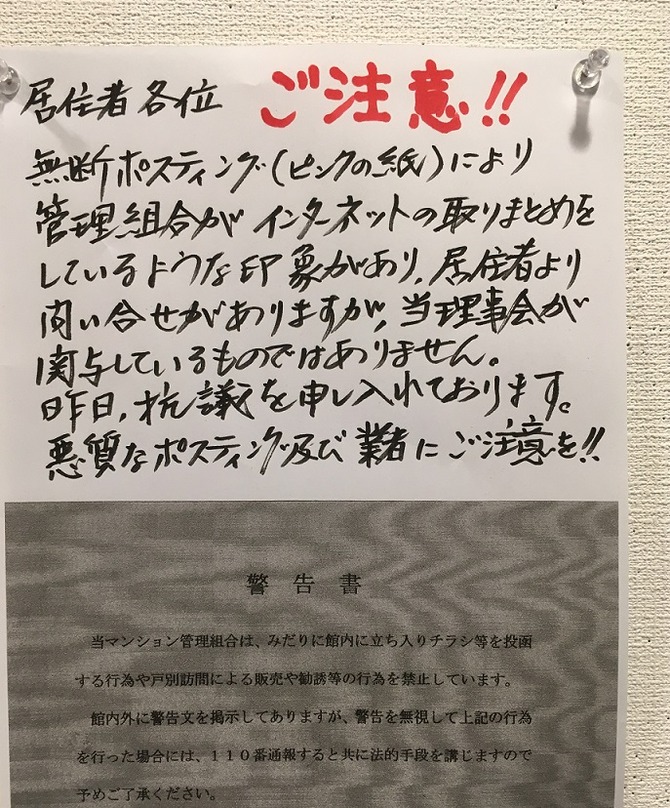 居住者各位 ご注意!!
無断ポスティング(ピンクの紙)により
管理組合がインターネットの取りまとめを
しているような印象があり、居住者より
問い合せがありますが、当理事会が
関与しているものではありません。
昨日、抗議を申し入れております。
悪質なポスティング及び業者にご注意を!!
警告書
当マンション管理組合は、みだりに館内に立ち入りチラシ等を投函
する行為や戸別訪問による販売や勧誘等の行為を禁止しています。
館内外に警告文を掲示してありますが、警告を無視して上記の行為
を行った場合には、110番通報すると共に法的手段を講じますので
予めご了承ください。